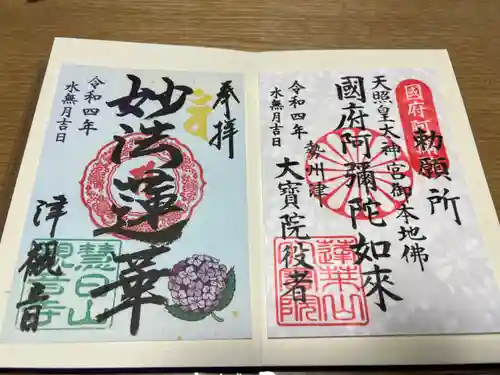 勅願所
天照皇大神宮御本地佛
國府阿彌陀如來
勢州津
大寶院役者
令和四年
水無月吉日
國府阿
蓮華山
奉拝
妙法蓮華
令和四年
水無月吉日
津観音
慧日山
観音寺